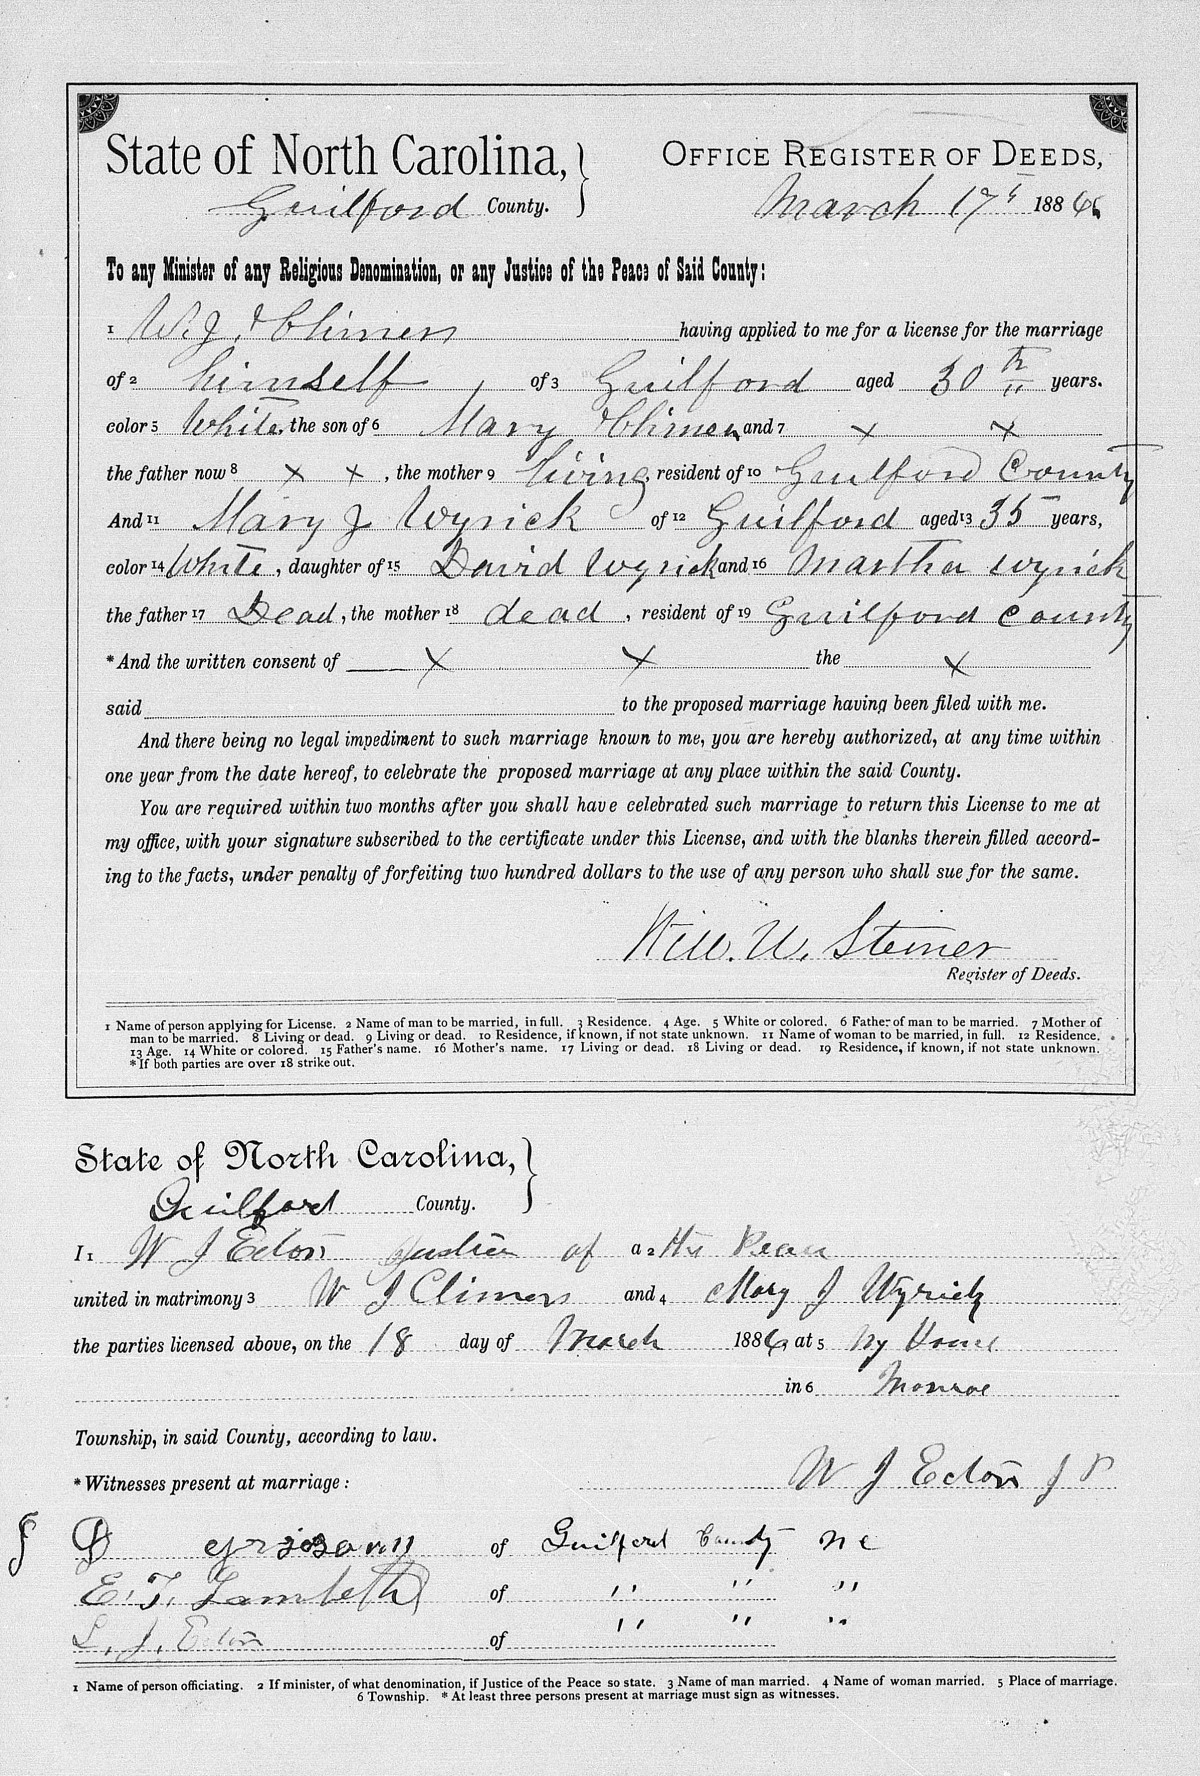 State of North Carolina, } OFFICE REGISTER OF DEEDS,
Guilford County. March 17th 1886
To any Minister of any Religious Denomination, or any Justice of the Peace of Said County:
1 W. J. Climer having applied to me for a license for the marriage
of 2 himself, of 3 Guilford aged 30 years.
color 5 White, the son of 6 Mary Climer and 7 x x
the father now 8 x x, the mother 9 living, resident of 10 Guilford County
And 11 Mary J Wyrick of 12 Guilford aged 13 35 years,
color 14 White, daughter of 15 David Wyrick and 16 Martha Wyrick
the father 17 Dead, the mother 18 dead, resident of 19 Guilford County
*And the written consent of x x the x
said to the proposed marriage having been filed with me.
And there being no legal impediment to such marriage known to me, you are hereby authorized, at any time within
one year from the date hereof, to celebrate the proposed marriage at any place within the said County.
You are required within two months after you shall have celebrated such marriage to return this License to me at
my office, with your signature subscribed to the certificate under this License, and with the blanks therein filled accord-
ing to the facts, under penalty of forfeiting two hundred dollars to the use of any person who shall sue for the same.
Will. U. Steiner
Register of Deeds.
1 Name of person applying for License. 2 Name of man to be married, in full. 3 Residence. 4 Age. 5 White or colored. 6 Father of man to be married. 7 Mother of
man to be married. 8 Living or dead. 9 Living or dead. 10 Residence, if known, if not state unknown. 11 Name of woman to be married, in full. 12 Residence.
13 Age. 14 White or colored. 15 Father's name. 16 Mother's name. 17 Living or dead. 18 Living or dead. 19 Residence, if known, if not state unknown.
*If both parties are over 18 strike out.
State of North Carolina, }
Guilford County.
I 1 W J Edon Justice of a 2 the Peace
united in matrimony 3 W J Climers and 4 Mary J Wyrick
the parties licensed above, on the 18 day of March 1886, at 5 my House
in 6 Monroe
Township, in said County, according to law.
W J Edon J P
*Witnesses present at marriage:
of Guilford County N C
E. T. Lambeth of " " "
L. J. Edon of " " "
1 Name of person officiating. 2 If minister, of what denomination, if Justice of the Peace so state. 3 Name of man married. 4 Name of woman married. 5 Place of marriage.
6 Township. * At least three persons present at marriage must sign as witnesses.